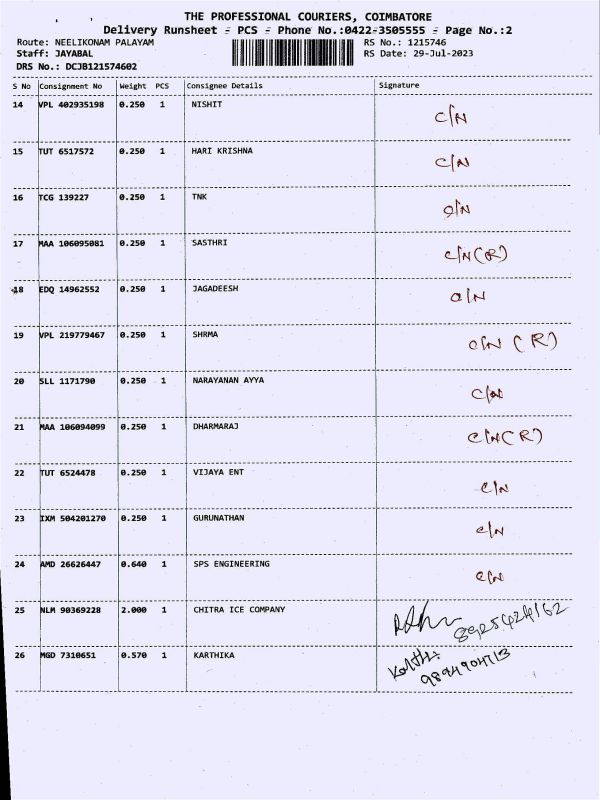 THE PROFESSIONAL COURIERS, COIMBATORE
Delivery Runsheet - PCS - Phone No.:0422-3505555 - Page No.:2
Route: NEELIKONAM PALAYAM RS No.: 1215746
Staff: JAYABAL RS Date: 29-Jul-2023
DRS No.: DCJB121574602
S No Consignment No Weight PCS Consignee Details Signature
14 VPL 402935198 0.250 1 NISHIT C/N
15 TUT 6517572 0.250 1 HARI KRISHNA C/N
16 TCG 139227 0.250 1 TNK O/N
17 MAA 106095081 0.250 1 SASTHRI C/N (R)
18 EDQ 14962552 0.250 1 JAGADEESH O/N
19 VPL 219779467 0.250 1 SHRMA C/N (R)
20 SLL 1171790 0.250 1 NARAYANAN AYYA C/N
21 MAA 106094099 0.250 1 DHARMARAJ C/N (R)
22 TUT 6524478 0.250 1 VIJAYA ENT C/N
23 IXM 504201270 0.250 1 GURUNATHAN C/N
24 AMD 26626447 0.640 1 SPS ENGINEERING C/N
25 NLM 90369228 2.000 1 CHITRA ICE COMPANY 8925424162
26 MGD 7310651 0.570 1 KARTHIKA 9894904713